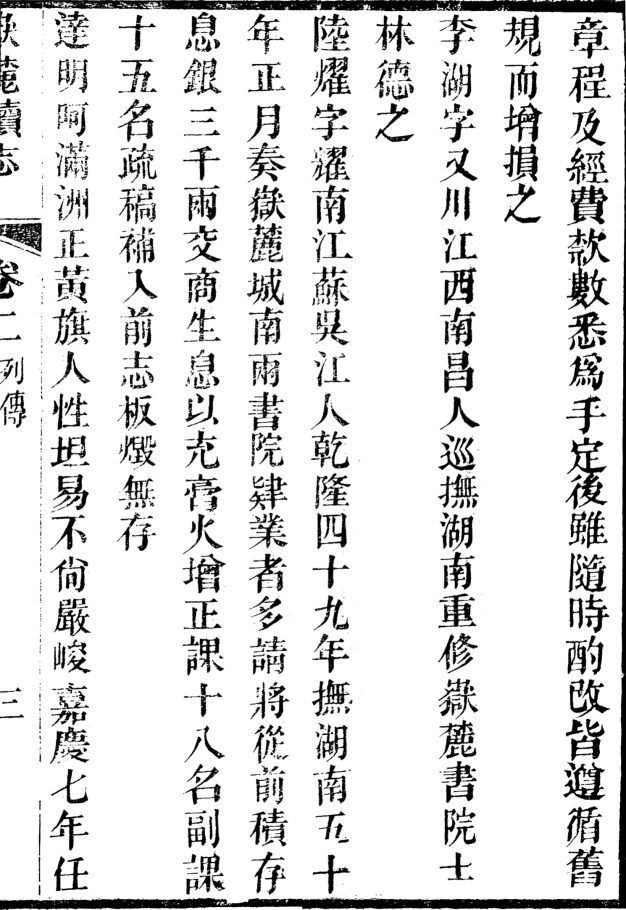 章程及經費欵數悉爲手定後雖隨時酌改皆遵循舊
規而增損之
李湖字又川江西南昌人巡撫湖南重修嶽麓書院士
林德之
陸燿字燿南江蘇吳江人乾隆四十九年撫湖南五十
年正月奏嶽麓城南兩書院肄業者多請將從前積存
息銀三千兩交商生息以充膏火增正課十八名副課
十五名疏稿補入前志板燬無存
達明阿滿洲正黃旗人性坦易不尙嚴峻嘉慶七年任
嶽麓續志 卷二列傳 三